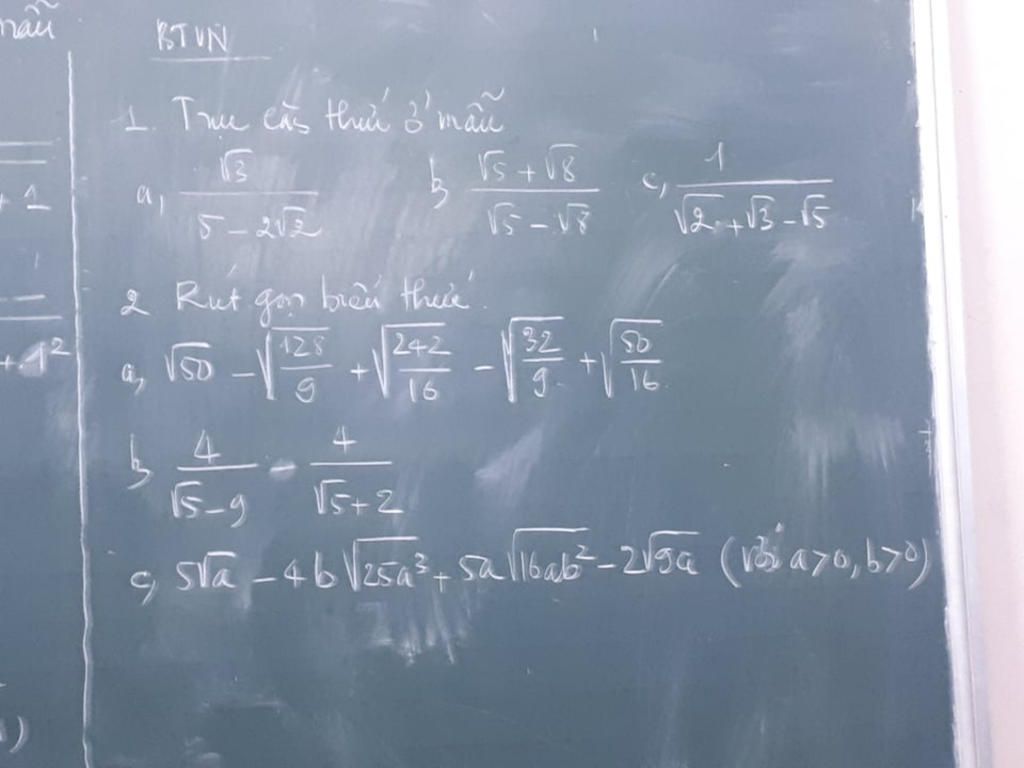 mẫu
+ 1
+ 1²
)
BTVN
1. Trục căn thức ở mẫu
a, √3/(5 - 2√2) b, (√5 + √8)/(√5 - √8) c, 1/(√2 + √3 - √5)
2 Rút gọn biểu thức.
a, √50 - √(128/9) + √(242/16) - √(32/9) + √(50/16)
b, 4/(√5 - 9) - 4/(√5 + 2)
c, 5√a - 4b√(25a³) + 5a√(16ab²) - 2√(9a) (với a>0, b>0)